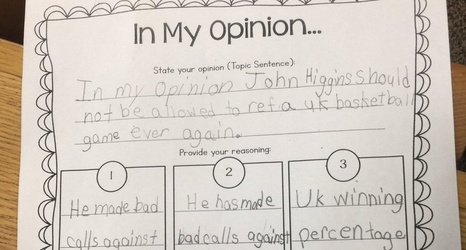 In My Opinion...
State your opinion (Topic Sentence):
In my opinion John Higgins should
not be allowed to ref a uk basketball
game ever again.
Provide your reasoning:
1
2
3
He made bad
calls against
He has made
bad calls against
Uk winning
percentage